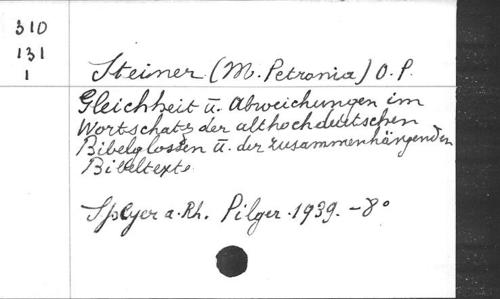 310
131
1
Steiner (M. Petronia) O. P.
Gleichheit ü. Abweichungen im
Wortschatz der althochdeutschen
Bibelglossen ü. der zusammenhängenden
Bibeltexte
Speyer a. Rh. Pilger. 1939. - 8°